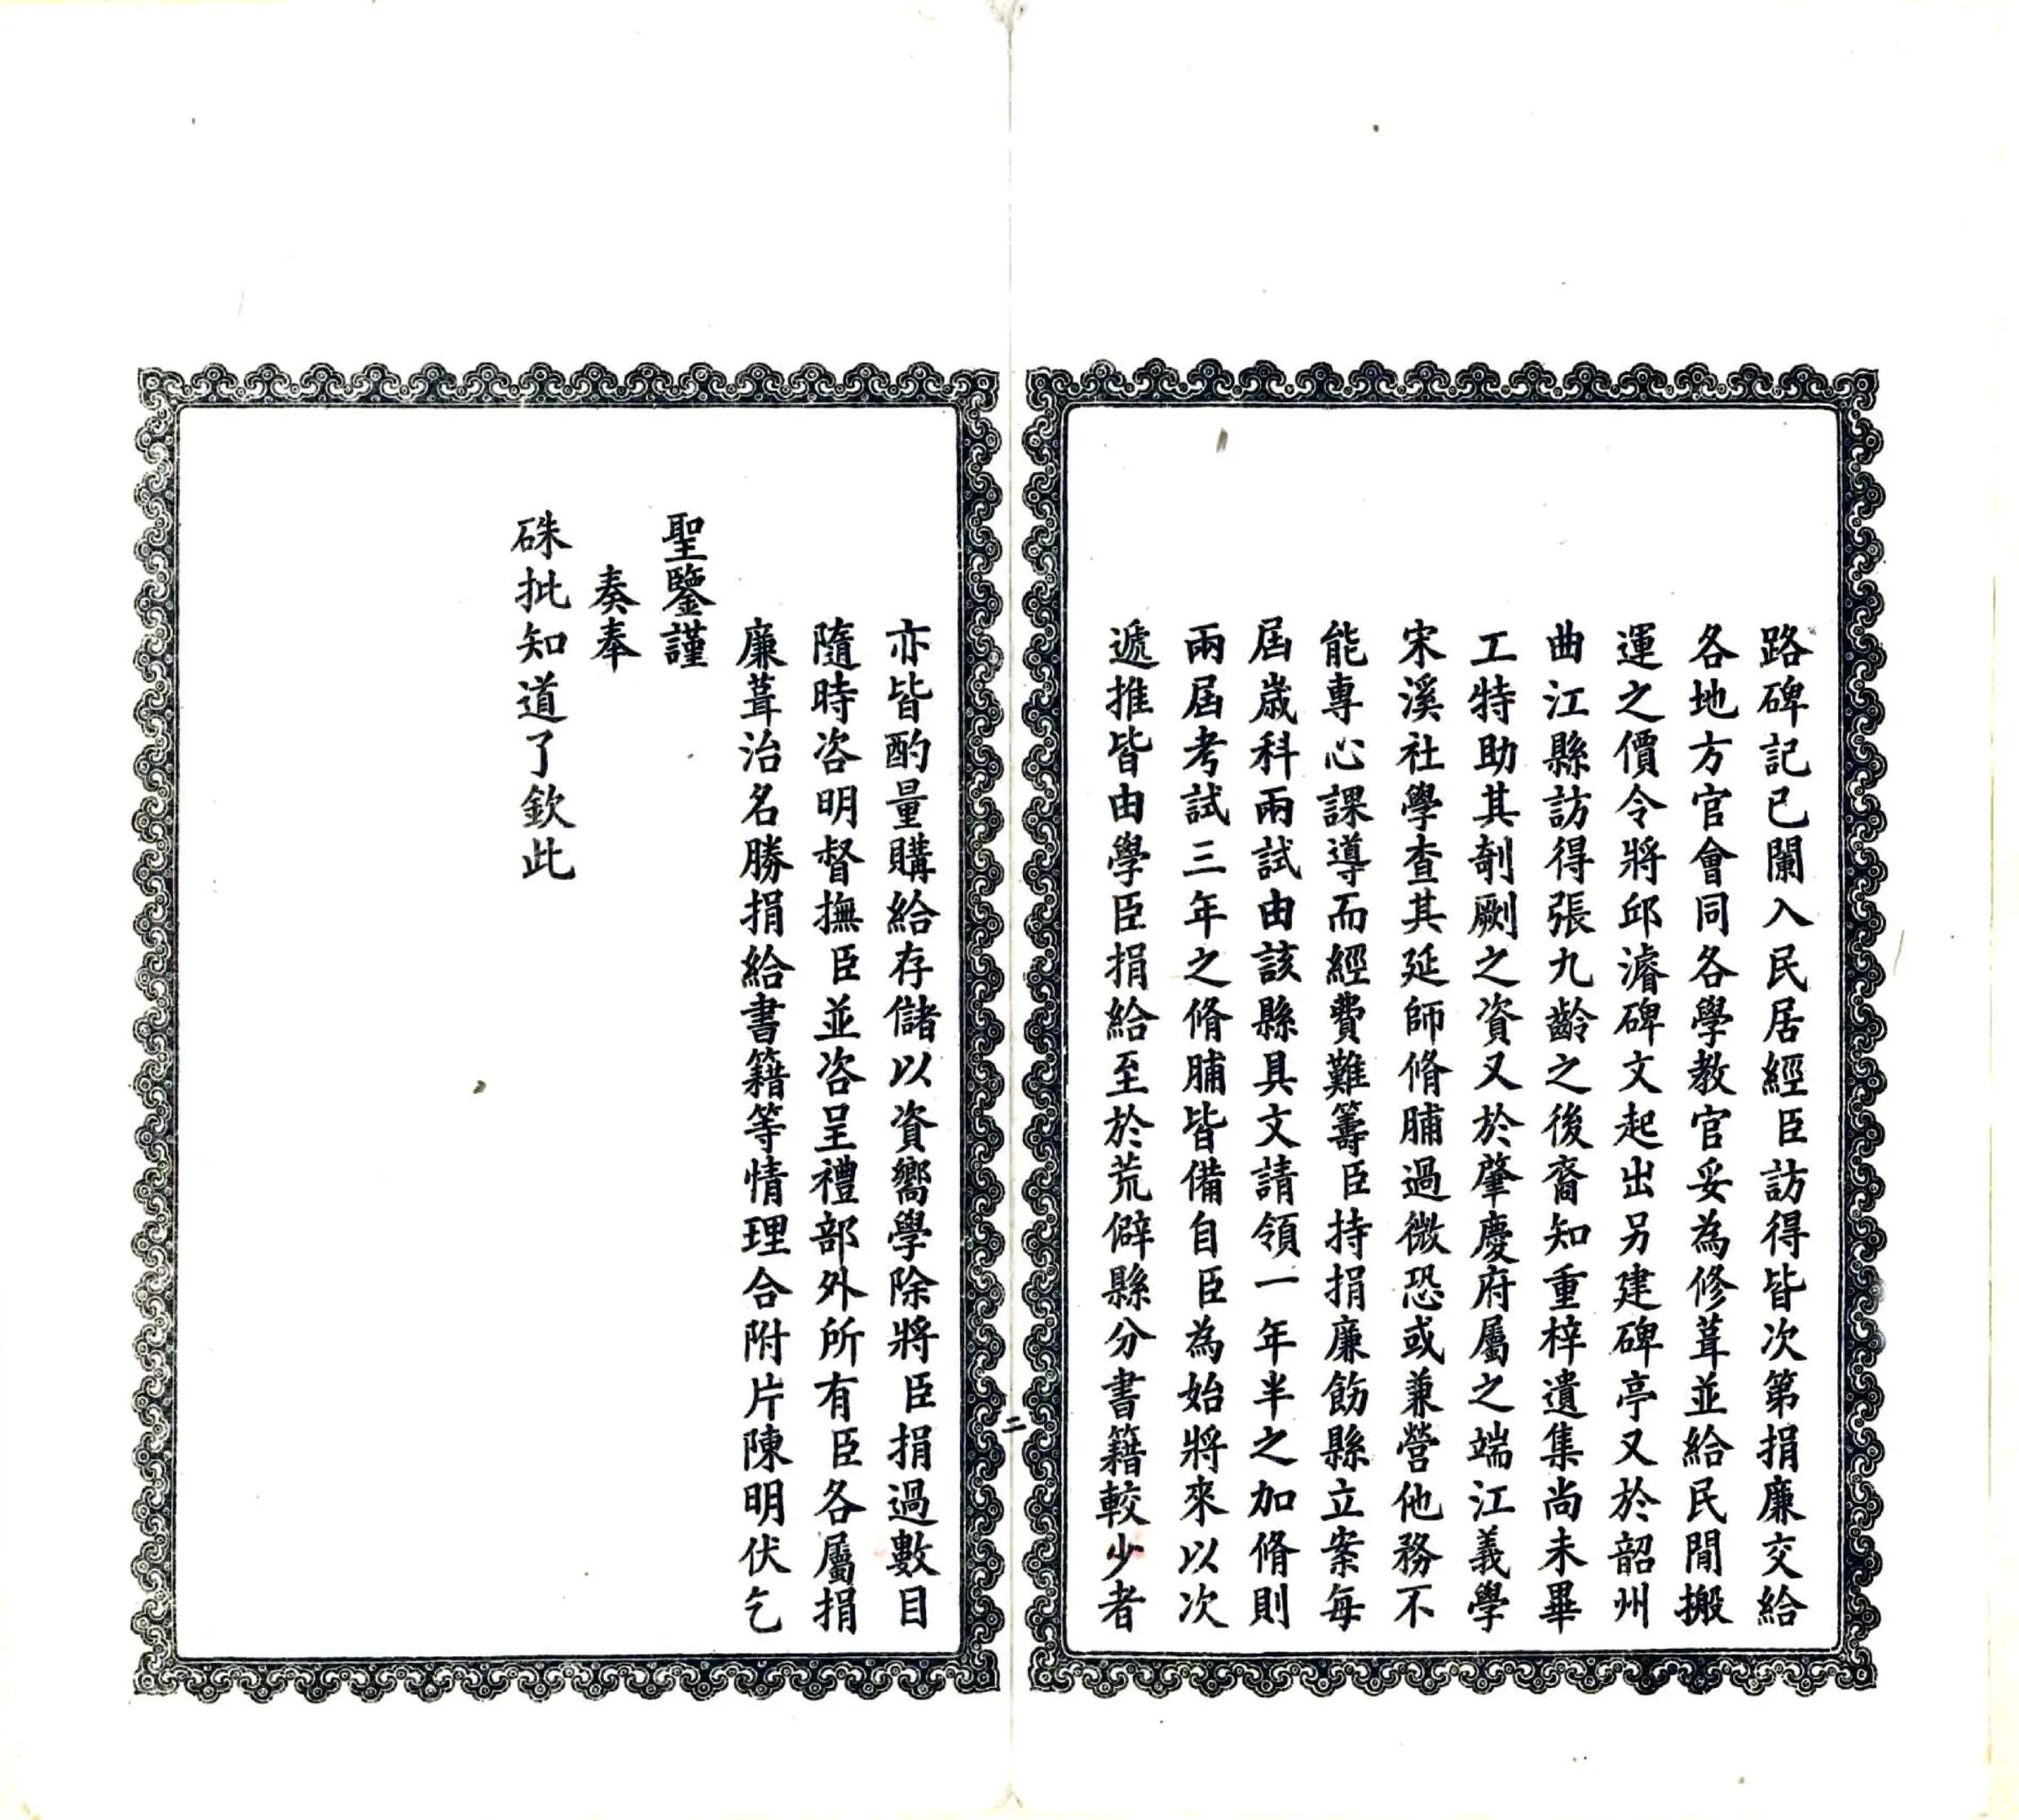 路碑記已闌入民居經臣訪得皆次第捐廉交給
各地方官會同各學教官妥為修葺並給民間搬
運之價令將邱濬碑文起出另建碑亭又於韶州
曲江縣訪得張九齡之後裔知重梓遺集尚未畢
工特助其剞劂之資又於肇慶府屬之端江義學
宋溪社學查其延師脩脯過微恐或兼營他務不
能專心課導而經費難籌臣持捐廉飭縣立案每
屆歲科兩試由該縣具文請領一年半之加脩則
兩屆考試三年之脩脯皆備自臣為始將來以次
遞推皆由學臣捐給至於荒僻縣分書籍較少者
二
亦皆酌量購給存儲以資嚮學除將臣捐過數目
隨時咨明督撫臣並咨呈禮部外所有臣各屬捐
廉葺治名勝捐給書籍等情理合附片陳明伏乞
聖鑒謹
奏奉
硃批知道了欽此